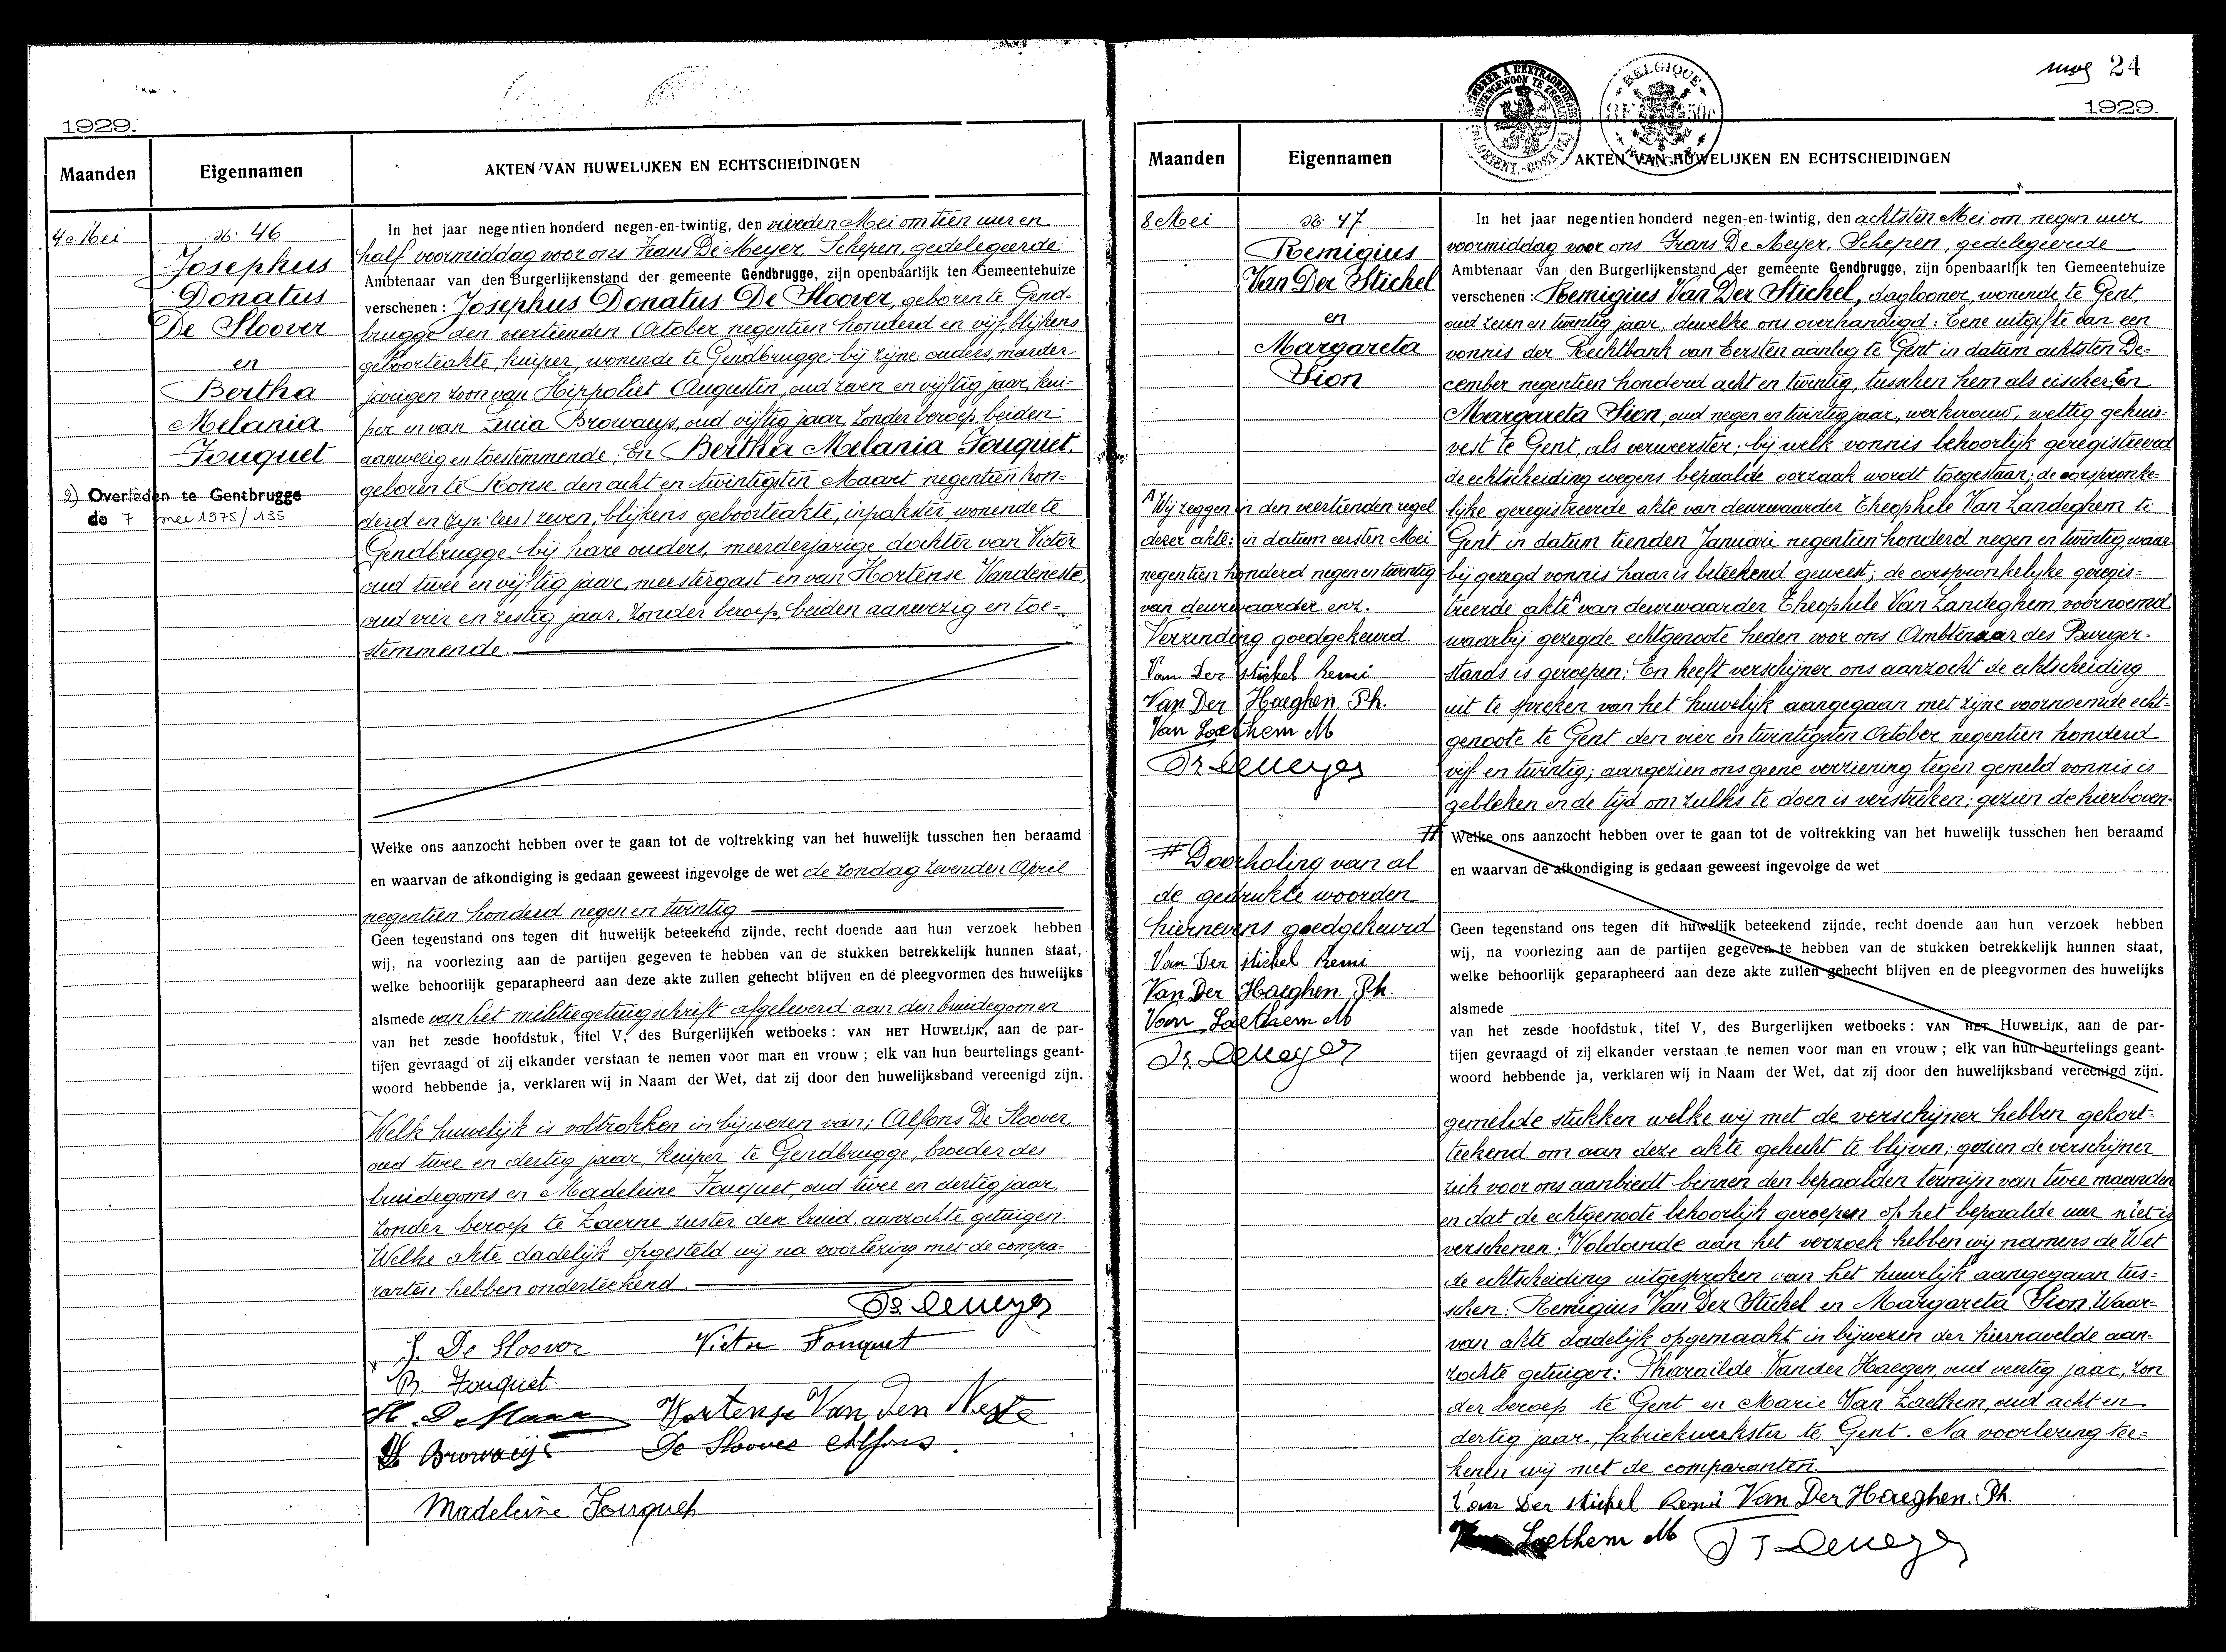 1929.
Maanden
Eigennamen
AKTEN VAN HUWELIJKEN EN ECHTSCHEIDINGEN
4e Mei
No. 46
Josephus
Donatus
De Sloover
en
Bertha
Melania
Fouquet
2) Overleden te Gentbrugge
de 7 mei 1975/135
In het jaar negentien honderd negen-en-twintig, den vierden Mei om tien uur en
half voormiddag voor ons Frans De Meyer, Schepen, gedelegeerde
Ambtenaar van den Burgerlijkenstand der gemeente Gendbrugge, zijn openbaarlijk ten Gemeentehuize
verschenen: Josephus Donatus De Sloover, geboren te Gend-
brugge den veertienden October negentien honderd en vijf, blijkens
geboorteakte, kuiper, wonende te Gendbrugge bij zijne ouders, meerder-
jarigen zoon van Hippoliet Augustin, oud zeven en vijftig jaar, kui-
per en van Lucia Browaeys, oud vijftig jaar, zonder beroep, beiden
aanwezig en toestemmende; En Bertha Melania Fouquet,
geboren te Ronse den acht en twintigsten Maart negentien hon-
derd en (zijn: lees) zeven, blijkens geboorteakte, inpakster, wonende te
Gendbrugge bij hare ouders, meerderjarige dochter van Victor
oud twee en vijftig jaar, meestergast en van Hortense Vandeneste,
oud vier en zestig jaar, zonder beroep, beiden aanwezig en toe-
stemmende.
Welke ons aanzocht hebben over te gaan tot de voltrekking van het huwelijk tusschen hen beraamd
en waarvan de afkondiging is gedaan geweest ingevolge de wet de zondag zevenden April
negentien honderd negen en twintig
Geen tegenstand ons tegen dit huwelijk beteekend zijnde, recht doende aan hun verzoek hebben
wij, na voorlezing aan de partijen gegeven te hebben van de stukken betrekkelijk hunnen staat,
welke behoorlijk geparapheerd aan deze akte zullen gehecht blijven en de pleegvormen des huwelijks
alsmede van het militiegetuigschrift afgeleverd aan den bruidegom en
van het zesde hoofdstuk, titel V, des Burgerlijken wetboeks: VAN HET HUWELIJK, aan de par-
tijen gevraagd of zij elkander verstaan te nemen voor man en vrouw; elk van hun beurtelings geant-
woord hebbende ja, verklaren wij in Naam der Wet, dat zij door den huwelijksband vereenigd zijn.
Welk huwelijk is voltrokken in bijwezen van: Alfons De Sloover,
oud twee en dertig jaar, kuiper te Gendbrugge, broeder des
bruidegoms en Madeleine Fouquet, oud twee en dertig jaar,
zonder beroep te Laerne, zuster der bruid, aanzochte getuigen.
Welke akte dadelijk opgesteld wij na voorlezing met de compa-
ranten hebben onderteekend.
Fr. Demeyer
J. De Sloover Victor Fouquet
B. Fouquet
Hortense Van den Neste
Browaeys De Sloover Alfons.
Madeleine Fouquet
24
1929.
TIMBRER A L'EXTRAORDINAIRE
BUITENGEWOON TE ZEGELEN
BELGIQUE
8F 50c
BELGIË
Maanden
Eigennamen
AKTEN VAN HUWELIJKEN EN ECHTSCHEIDINGEN
8 Mei
No. 47
Remigius
Van Der Stichel
en
Margareta
Sion
A Wij zeggen in den veertienden regel
dezer akte: in datum eersten Mei
negentien honderd negen en twintig
van deurwaarder enz.
Verzending goedgekeurd.
Van Der Stichel Remi
Van Der Haeghen. Ph.
Van Laethem M
Fr. Demeyer
# Doorhaling van al
de gedrukte woorden
hiernevens goedgekeurd
Van Der Stichel Remi
Van Der Haeghen. Ph.
Van Laethem M
Fr. Demeyer
In het jaar negentien honderd negen-en-twintig, den achtsten Mei om negen uur
voormiddag voor ons Frans De Meyer, Schepen, gedelegeerde
Ambtenaar van den Burgerlijkenstand der gemeente Gendbrugge, zijn openbaarlijk ten Gemeentehuize
verschenen: Remigius Van Der Stichel, daglooner, wonende te Gent,
oud zeven en twintig jaar, dewelke ons overhandigd: Eene uitgifte van een
vonnis der Rechtbank van Eersten aanleg te Gent in datum achtsten De-
cember negentien honderd acht en twintig, tusschen hem als eischer; En
Margareta Sion, oud negen en twintig jaar, werkvrouw, wettig gehuis-
vest te Gent, als verweerster; bij welk vonnis behoorlijk geregistreerd
de echtscheiding wegens bepaalde oorzaak wordt toegestaan; de oorspronke-
lijke geregistreerde akte van deurwaarder Theophile Van Landeghem te
Gent in datum tienden Januari negentien honderd negen en twintig, waar
bij gezegd vonnis haar is beteekend geweest; de oorspronkelijke geregis-
treerde akte A van deurwaarder Theophile Van Landeghem, voornoemd
waarbij gezegde echtgenoote heden voor ons Ambtenaar des Burger-
stands is geroepen; En heeft verschijner ons aanzocht de echtscheiding
uit te spreken van het huwelijk aangegaan met zijne voornoemde echt-
genoote te Gent den vier en twintigsten October negentien honderd
vijf en twintig; aangezien ons geene verziening tegen gemeld vonnis is
gebleken en de tijd om zulks te doen is verstreken; gezien de hierboven-
# Welke ons aanzocht hebben over te gaan tot de voltrekking van het huwelijk tusschen hen beraamd
en waarvan de afkondiging is gedaan geweest ingevolge de wet
Geen tegenstand ons tegen dit huwelijk beteekend zijnde, recht doende aan hun verzoek hebben
wij, na voorlezing aan de partijen gegeven te hebben van de stukken betrekkelijk hunnen staat,
welke behoorlijk geparapheerd aan deze akte zullen gehecht blijven en de pleegvormen des huwelijks
alsmede
van het zesde hoofdstuk, titel V, des Burgerlijken wetboeks: VAN HET HUWELIJK, aan de par-
tijen gevraagd of zij elkander verstaan te nemen voor man en vrouw; elk van hun beurtelings geant-
woord hebbende ja, verklaren wij in Naam der Wet, dat zij door den huwelijksband vereenigd zijn.
gemelde stukken welke wij met de verschijner hebben gekort-
teekend om aan deze akte gehecht te blijven; gezien de verschijner
zich voor ons aanbiedt binnen den bepaalden termijn van twee maanden
en dat de echtgenoote behoorlijk geroepen op het bepaalde uur niet is
verschenen; Voldoende aan het verzoek hebben wij namens de Wet
de echtscheiding uitgesproken van het huwelijk aangegaan tus-
schen: Remigius Van Der Stichel en Margareta Sion. Waar-
van akte dadelijk opgemaakt in bijwezen der hiernavelde aan-
zochte getuigen: Pharaïlde Vander Haegen, oud veertig jaar, zon
der beroep te Gent en Marie Van Laethem, oud acht en
dertig jaar, fabriekwerkster te Gent. Na voorlezing tee-
kenen wij met de comparanten.
Van Der Stichel Remi Van Der Haeghen. Ph.
Van Laethem M Fr. Demeyer